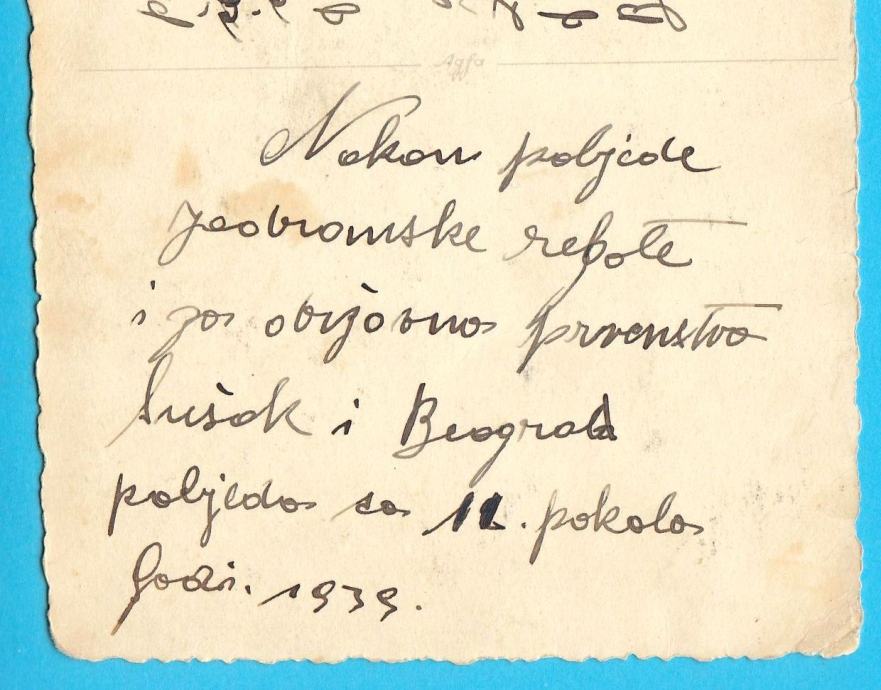 Agfa
Nakon pobjede
jadranske regate
i za državno prvenstvo
Sušak i Beograd
pobjeda sa 11. pokala
godi. 1939.